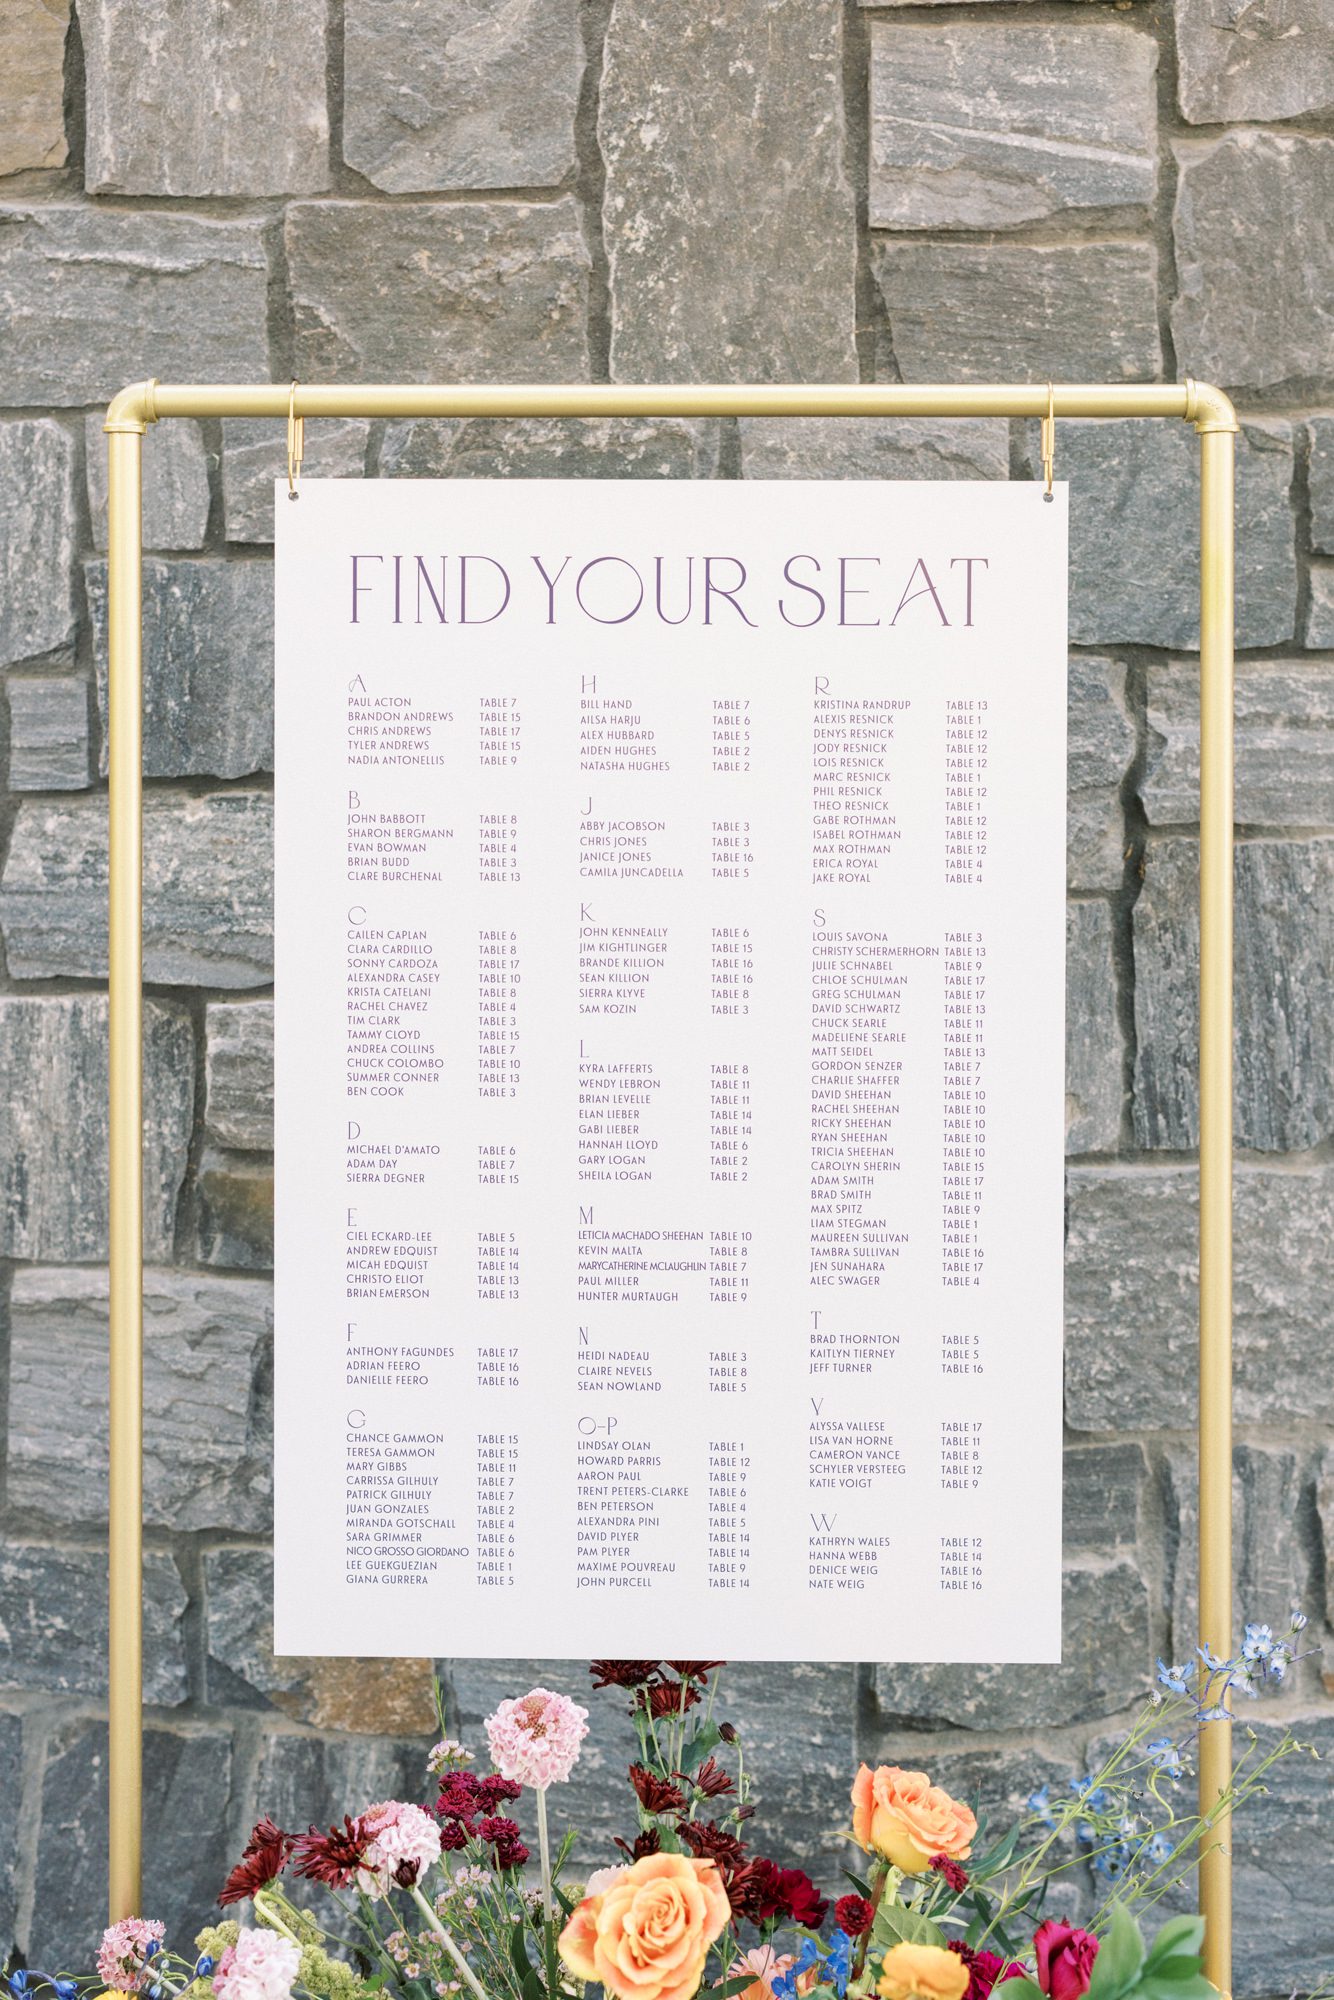 FIND YOUR SEAT
A
PAUL ACTON TABLE 7
BRANDON ANDREWS TABLE 15
CHRIS ANDREWS TABLE 17
TYLER ANDREWS TABLE 15
NADIA ANTONELLIS TABLE 9
B
JOHN BABBOTT TABLE 8
SHARON BERGMANN TABLE 9
EVAN BOWMAN TABLE 4
BRIAN BUDD TABLE 3
CLARE BURCHENAL TABLE 13
C
CAILEN CAPLAN TABLE 6
CLARA CARDILLO TABLE 8
SONNY CARDOZA TABLE 17
ALEXANDRA CASEY TABLE 10
KRISTA CATELANI TABLE 8
RACHEL CHAVEZ TABLE 4
TIM CLARK TABLE 3
TAMMY CLOYD TABLE 15
ANDREA COLLINS TABLE 7
CHUCK COLOMBO TABLE 10
SUMMER CONNER TABLE 13
BEN COOK TABLE 3
D
MICHAEL D'AMATO TABLE 6
ADAM DAY TABLE 7
SIERRA DEGNER TABLE 15
E
CIEL ECKARD-LEE TABLE 5
ANDREW EDQUIST TABLE 14
MICAH EDQUIST TABLE 14
CHRISTO ELIOT TABLE 13
BRIAN EMERSON TABLE 13
F
ANTHONY FAGUNDES TABLE 17
ADRIAN FEERO TABLE 16
DANIELLE FEERO TABLE 16
G
CHANCE GAMMON TABLE 15
TERESA GAMMON TABLE 15
MARY GIBBS TABLE 11
CARRISSA GILHULY TABLE 7
PATRICK GILHULY TABLE 7
JUAN GONZALES TABLE 2
MIRANDA GOTSCHALL TABLE 4
SARA GRIMMER TABLE 6
NICO GROSSO GIORDANO TABLE 6
LEE GUEKGUEZIAN TABLE 1
GIANA GURRERA TABLE 5
H
BILL HAND TABLE 7
AILSA HARJU TABLE 6
ALEX HUBBARD TABLE 5
AIDEN HUGHES TABLE 2
NATASHA HUGHES TABLE 2
J
ABBY JACOBSON TABLE 3
CHRIS JONES TABLE 3
JANICE JONES TABLE 16
CAMILA JUNCADELLA TABLE 5
K
JOHN KENNEALLY TABLE 6
JIM KIGHTLINGER TABLE 15
BRANDE KILLION TABLE 16
SEAN KILLION TABLE 16
SIERRA KLYVE TABLE 8
SAM KOZIN TABLE 3
L
KYRA LAFFERTS TABLE 8
WENDY LEBRON TABLE 11
BRIAN LEVELLE TABLE 11
ELAN LIEBER TABLE 14
GABI LIEBER TABLE 14
HANNAH LLOYD TABLE 6
GARY LOGAN TABLE 2
SHEILA LOGAN TABLE 2
M
LETICIA MACHADO SHEEHAN TABLE 10
KEVIN MALTA TABLE 8
MARYCATHERINE MCLAUGHLIN TABLE 7
PAUL MILLER TABLE 11
HUNTER MURTAUGH TABLE 9
N
HEIDI NADEAU TABLE 3
CLAIRE NEVELS TABLE 8
SEAN NOWLAND TABLE 5
O-P
LINDSAY OLAN TABLE 1
HOWARD PARRIS TABLE 12
AARON PAUL TABLE 9
TRENT PETERS-CLARKE TABLE 6
BEN PETERSON TABLE 4
ALEXANDRA PINI TABLE 5
DAVID PLYER TABLE 14
PAM PLYER TABLE 14
MAXIME POUVREAU TABLE 9
JOHN PURCELL TABLE 14
R
KRISTINA RANDRUP TABLE 13
ALEXIS RESNICK TABLE 1
DENYS RESNICK TABLE 12
JODY RESNICK TABLE 12
LOIS RESNICK TABLE 12
MARC RESNICK TABLE 1
PHIL RESNICK TABLE 12
THEO RESNICK TABLE 1
GABE ROTHMAN TABLE 12
ISABEL ROTHMAN TABLE 12
MAX ROTHMAN TABLE 12
ERICA ROYAL TABLE 4
JAKE ROYAL TABLE 4
S
LOUIS SAVONA TABLE 3
CHRISTY SCHERMERHORN TABLE 13
JULIE SCHNABEL TABLE 9
CHLOE SCHULMAN TABLE 17
GREG SCHULMAN TABLE 17
DAVID SCHWARTZ TABLE 13
CHUCK SEARLE TABLE 11
MADELIENE SEARLE TABLE 11
MATT SEIDEL TABLE 13
GORDON SENZER TABLE 7
CHARLIE SHAFFER TABLE 7
DAVID SHEEHAN TABLE 10
RACHEL SHEEHAN TABLE 10
RICKY SHEEHAN TABLE 10
RYAN SHEEHAN TABLE 10
TRICIA SHEEHAN TABLE 10
CAROLYN SHERIN TABLE 15
ADAM SMITH TABLE 17
BRAD SMITH TABLE 11
MAX SPITZ TABLE 9
LIAM STEGMAN TABLE 1
MAUREEN SULLIVAN TABLE 1
TAMBRA SULLIVAN TABLE 16
JEN SUNAHARA TABLE 17
ALEC SWAGER TABLE 4
T
BRAD THORNTON TABLE 5
KAITLYN TIERNEY TABLE 5
JEFF TURNER TABLE 16
V
ALYSSA VALLESE TABLE 17
LISA VAN HORNE TABLE 11
CAMERON VANCE TABLE 8
SCHYLER VERSTEEG TABLE 12
KATIE VOIGT TABLE 9
W
KATHRYN WALES TABLE 12
HANNA WEBB TABLE 14
DENICE WEIG TABLE 16
NATE WEIG TABLE 16